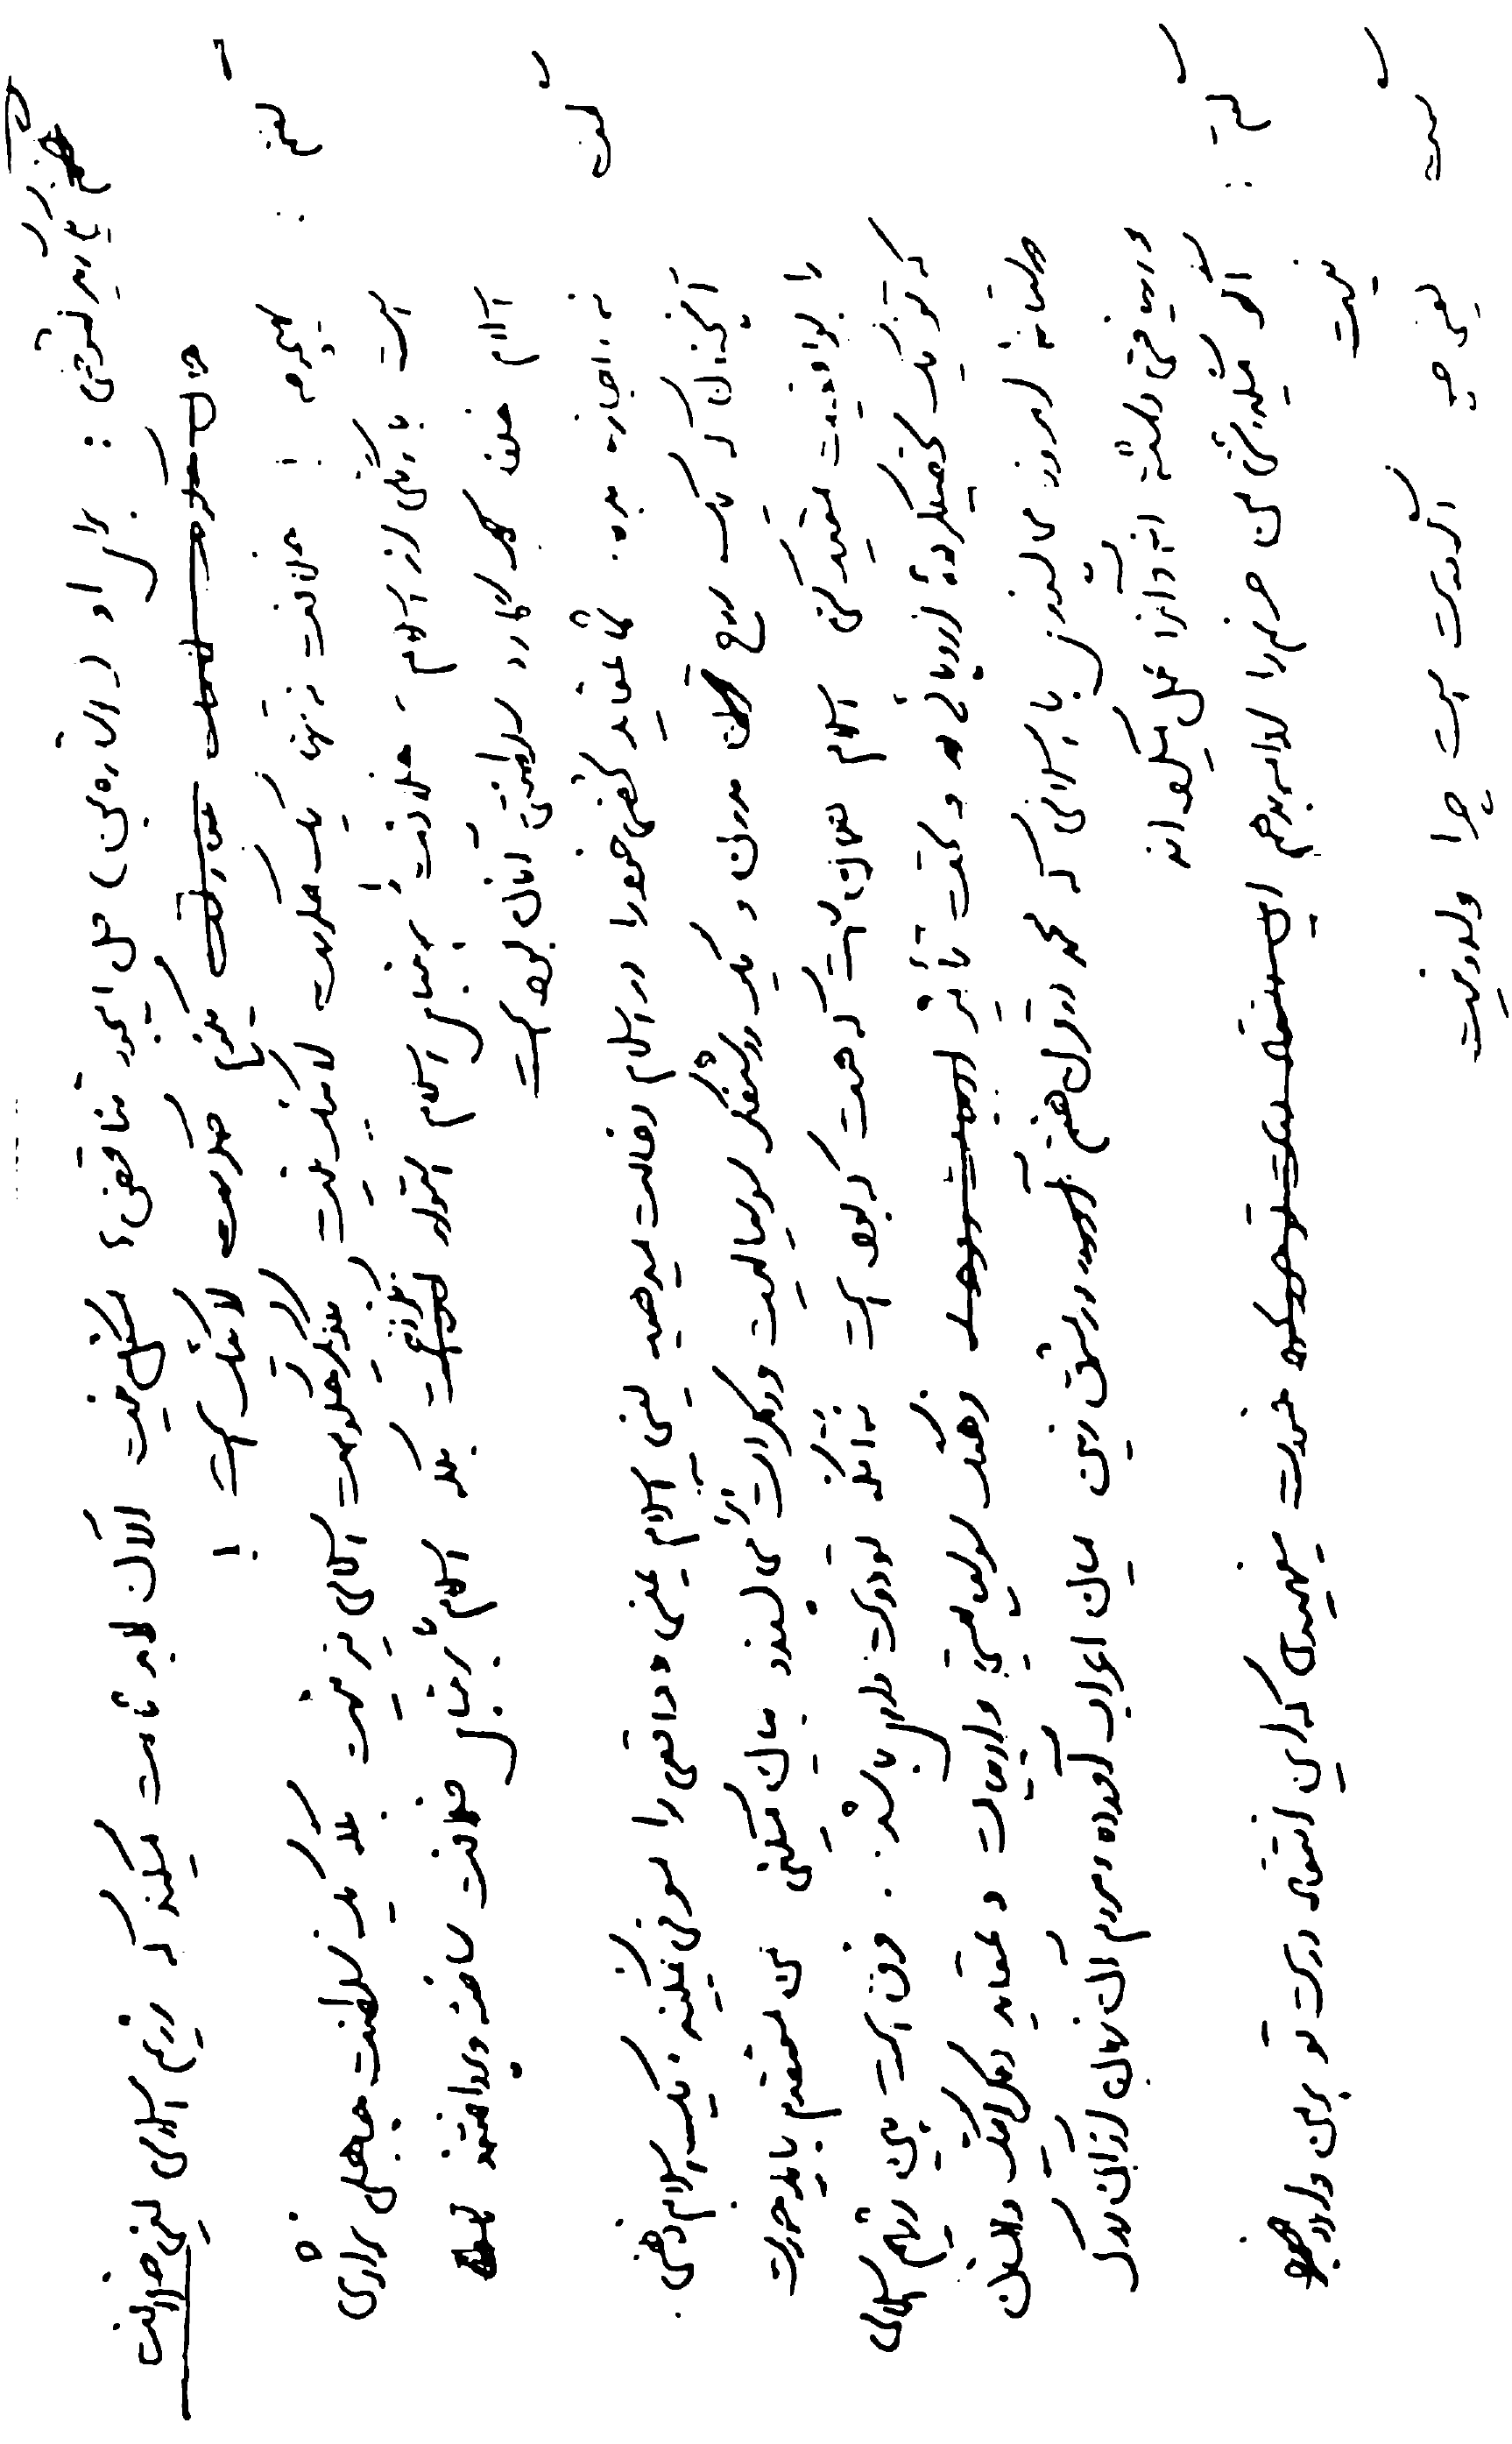 گفتم یا میرفتوشی : برای او ( اشاره بمن ) حل اینجور تناقض‌ها مشکل نیست الان لابد ثابت میکند که رژیم اسلامی یعنی خلافت
بگویم حکومت لائیک است !
گفتم : هیچوجه ! خلافت نه تنها یک حکومت لائیک نیست بلکه حکومت اسلامی نیز نیست بلکه یک سلطنت جاهلی نژادی
است با رنگی از اسلام. خلافت بر مبنای اسلام استوار نبوده است بلکه اسلام را بر مبنای خلافت ساخته و پرداختند
اسلام خلفا کارد سلطنتی آنان بوده است
گفت : نه، اجازه بده. شما عقاید شخصی خود را در اسلام دخالت میدهید یعنی اسلام عینی و واقعی را معرفی نمیکنید. یک اسلام ذهنی.
آنچنان که یک روح مدرن و یک روشنفکر سوسیالیست و دمکرات آنرا می پسندد بیان میکنی من معتقدم باید خودت
را بواقعیت مقید کنی اسلام همان است که هست که بوده است نه آنکه تو دوست داری باشد. فرق است بین رژیم اسلامی
که تو یک تحصیلکرده اروپائی و تحت تأثیر فرهنگ سوسیالیستی و اومانیست و عقاید دمکراتیک و انسان
دوستانه امروز می سازی با اسلامی که محمد در قرن هفتم در مشرق زمین میان اعراب آورده و مردم آن زمان از آن درک
و دریافتی داشته اند و آنرا عمل میکرده اند
گفتم : اگر میگذاشتی من حرفم را ادامه بدهم خودت میفهمیدی که این انتقاد درست تو بمن وارد
نیست
گفت : یعنی چه اگر درست است چرا وارد نیست